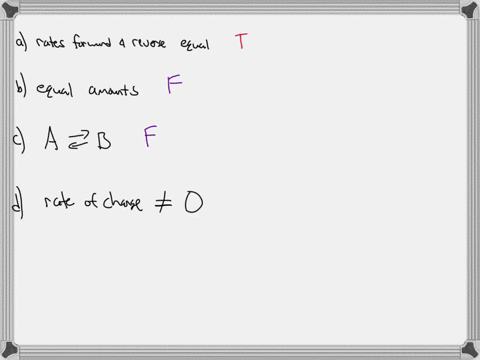 a) rates forward & reverse equal T
b) equal amounts F
c) A ⇄ B F
d) rate of change ≠ 0